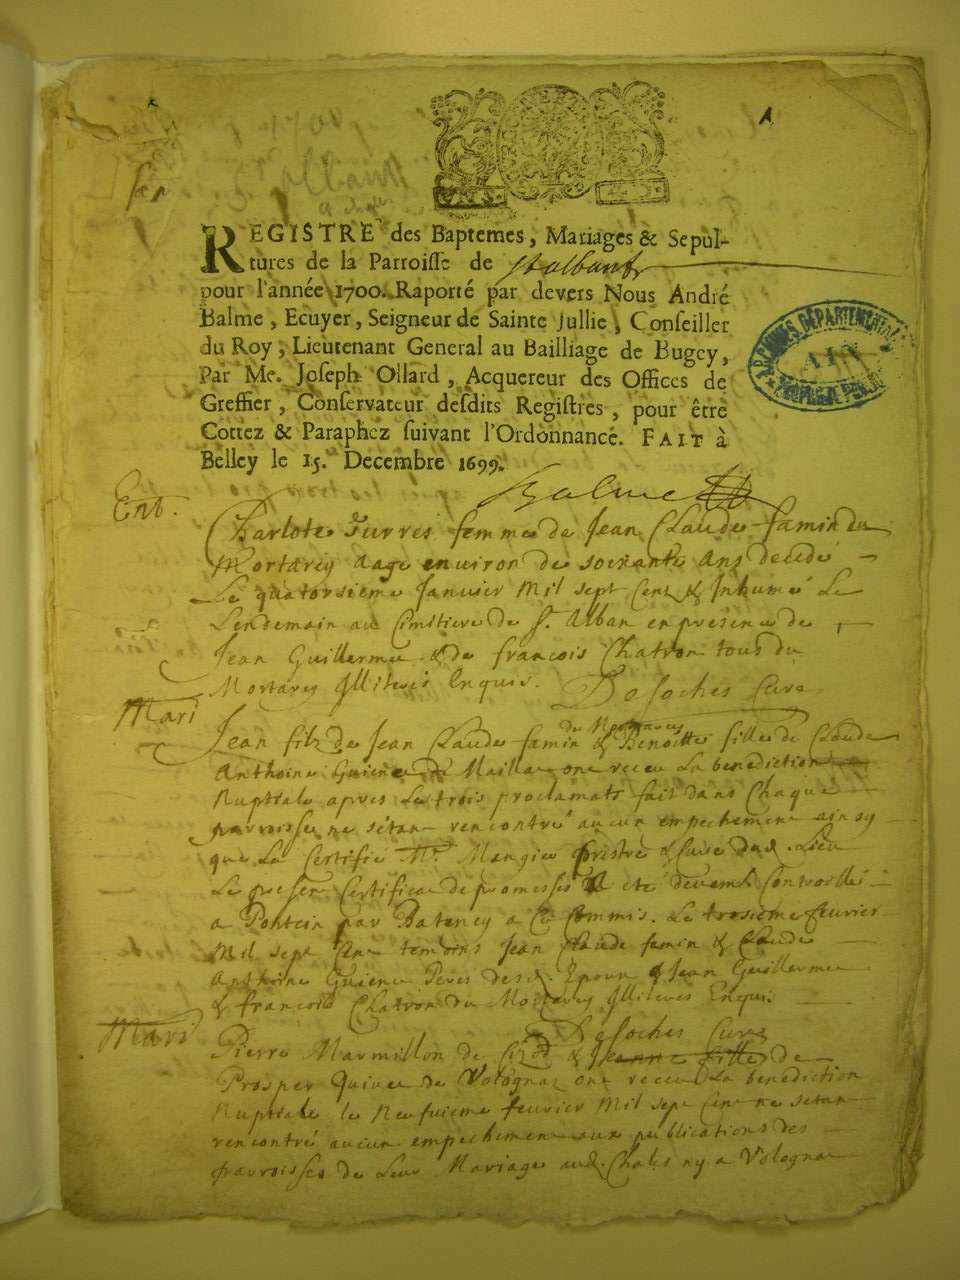 REGISTRE des Baptemes, Mariages & Sepul-
tures de la Parroisse de St albant
pour l'année 1700. Raporté par devers Nous André
Balme, Ecuyer, Seigneur de Sainte Jullie, Conseiller
du Roy, Lieutenant General au Bailliage de Bugey,
Par Me. Joseph Ollard, Acquereur des Offices de
Greffier, Conservateur desdits Registres, pour être
Cottez & Paraphez suivant l'Ordonnance. FAIT à
Belley le 15. Decembre 1699.
Balme
ARCHIVES DÉPARTEMENTALES
AIN
Ent.
Charlote femme de Jean Claude famin du
Mortarey aage environ de soixante ans decede
Le quatorsieme Janvier Mil sept Cent & Inhumé Le
Lendemain au Cimitiere de St. Alban en presence de
Jean Guillerme & de francois Chatron tous du
Mortarey Illiteres Enquis. Desoches Cure
Mari
Jean filz de Jean Claude famin & Benoitte fille de Claude
Anthoine Guienet de Mailla ont receu La benediction
Nuptiale apres Les trois proclamats fait dans Chaque
parroisse ne sétant rencontré aucun empechement ainsy
que La Certifié Mr. Mangier prestre & Cure dud. Lieu
Le present Certificat de promesses a eté devant Controllé
a Pontcin par Batency a Ce Commis. Le trosieme fevrier
Mil sept Cent temoins Jean Claude famin & Claude
Anthoine Guienet Peres desd. Epoux & Jean Guillerme
& francois Chatron du Mortarey Illiteres Enquis.
Desoches Cure
Mari
Pierre Marmillon de & Jeanne fille de
Prosper de Vologna ont receu La benediction
Nuptiale le Neufvieme fevrier Mil sept Cent ne setant
rencontré aucun empechement aux publications des
parroisses de Leur Mariage aud. Chales ny a Vologna